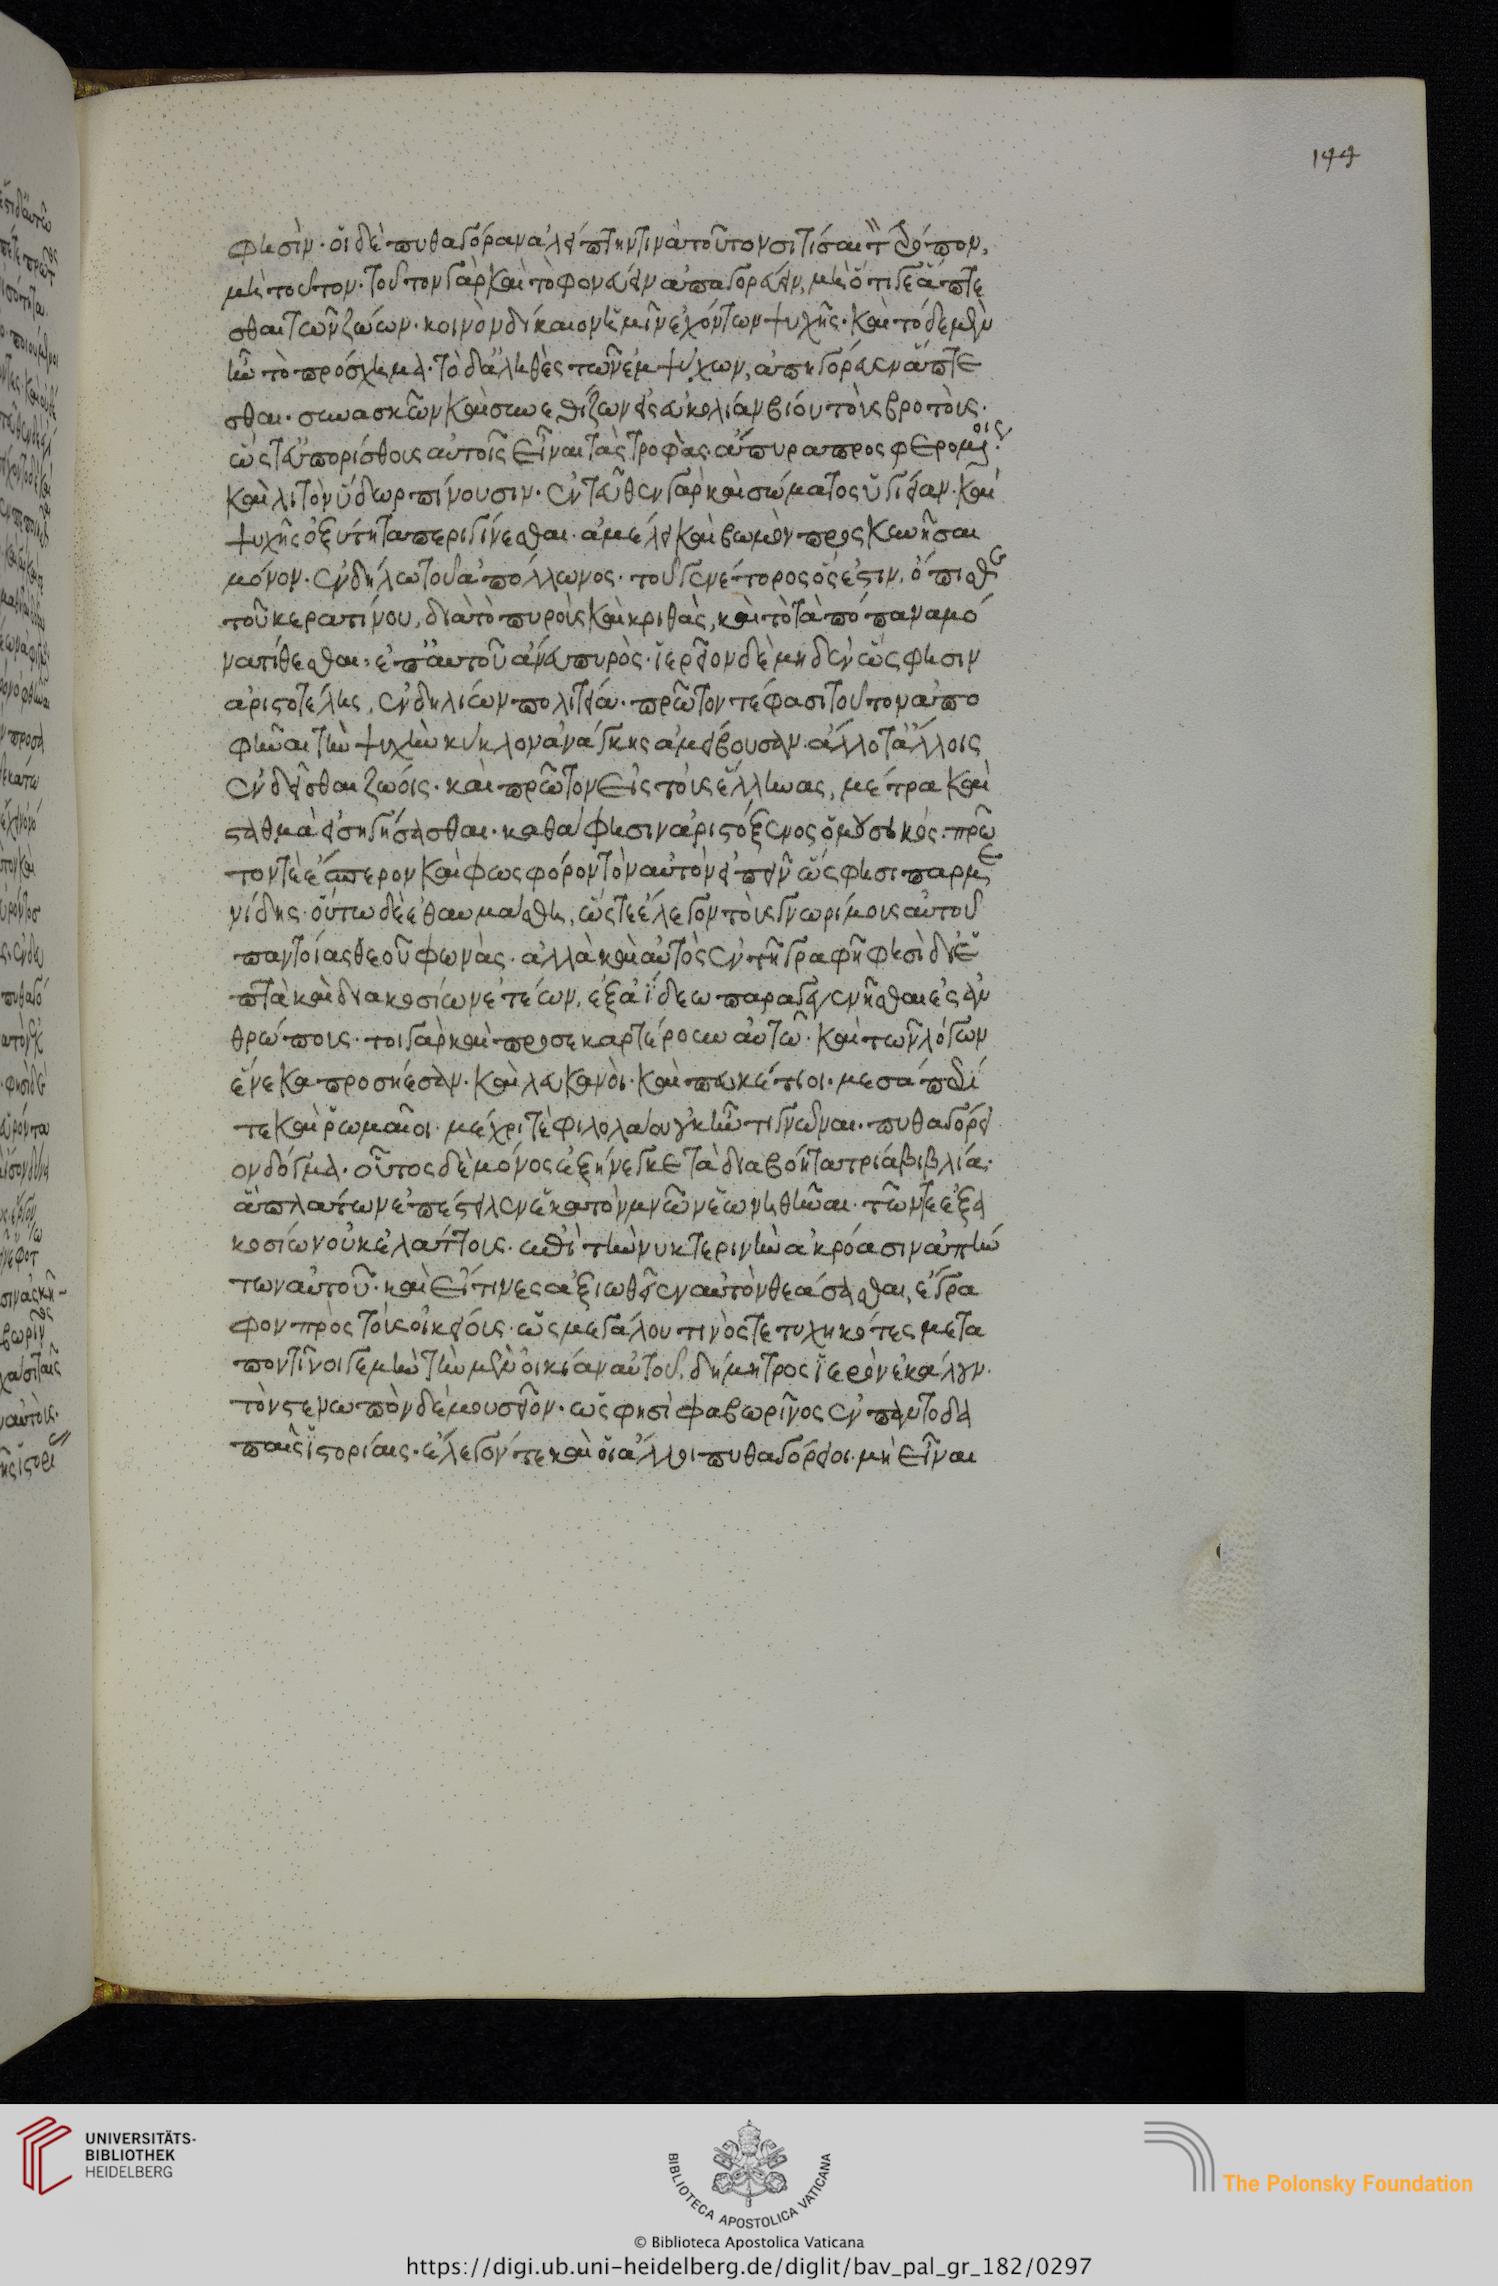 144
φησὶν· οἱ δὲ πυθαγόραν ἀλείπτην τινὰ τοῦτον σιτίσαι τ τρόπον,
μὴ τοῦτον· τοῦτον γὰρ καὶ τὸ φονεύειν ἀπαγορεύειν, μὴ ὅτι γε ἅπτε
σθαι τῶν ζώων· κοινὸν δίκαιον ἡμῖν ἐχόντων ψυχῆς· καὶ τόδε μὲν
ἦν τὸ πρόσχημα· τὸ δ' ἀληθὲς τῶν ἐμψύχων, ἀπηγόρευεν ἅπτε
σθαι· συνασκῶν καὶ συνεθίζων εἰς εὐκολίαν βίου τοὺς βροτοὺς·
ὥστ' εὐπορίσθους αὐτοῖς εἶναι τὰς τροφὰς· ἄπυρα προσφερομένοις·
καὶ λιτὸν ὕδωρ πίνουσιν· ἐντεῦθεν γὰρ καὶ σώματος ὑγίειαν· καὶ
ψυχῆς ὀξύτητα περιγίνεσθαι· ἀμέλει καὶ βωμὸν προσκυνῆσαι
μόνον· ἐν δήλῳ τοῦ ἀπόλλωνος· τοῦ γενέτορος ὅς ἐστιν, ὄπισθε
τοῦ κερατίνου, διὰ τὸ πυροὺς καὶ κριθὰς, καὶ τὸ τὰ πόπανα μό
να τίθεσθαι· ἐπ' αὐτοῦ ἄνευ πυρὸς· ἱερεῖον δὲ μηδὲν ὥς φησιν
ἀριστοτέλης, ἐν δηλίων πολιτείᾳ· πρῶτόν τέ φασι τοῦτον ἀπο
φῆναι τὴν ψυχὴν κύκλον ἀνάγκης ἀμείβουσαν· ἄλλοτ' ἄλλοις
ἐνδεῖσθαι ζώοις· καὶ πρῶτον εἰς τοὺς ἕλληνας, μέτρα καὶ
σταθμὰ εἰσηγήσασθαι· καθά φησιν ἀριστόξενος ὁ μουσικός· πρῶ
τόν τε ἕσπερον καὶ φωσφόρον τὸν αὐτὸν εἰπεῖν ὥς φησι παρμε
νίδης· οὕτω δὲ ἐθαυμάσθη, ὥστε ἔλεγον τοὺς γνωρίμους αὐτοῦ
παντοίας θεοῦ φωνὰς· ἀλλὰ καὶ αὐτὸς ἐν τῇ γραφῇ φησὶ δι' ἑ
πτὰ καὶ διακοσίων ἐτέων, ἐξ ἀΐδεω παραγεγενῆσθαι ἐς ἀν
θρώπους· τοιγὰρ καὶ προσεκαρτέρουν αὐτῷ· καὶ τῶν λόγων
ἕνεκα προσῄεσαν· καὶ λευκανοὶ· καὶ πευκέτιοι· μεσάπιοί
τε καὶ ῥωμαῖοι· μέχρι τὲ φιλολάου γκ ἦν τι γνῶναι· πυθαγόρει
ον δόγμα· οὗτος δὲ μόνος ἐξήνεγκε τὰ διαβόητα τρία βιβλία·
ἃ πλάτων ἐπέστειλεν ἑκατὸν μνῶν ἐωνηθῆναι· τῶν τε ἑξα
κοσίων οὐκ ἐλάττους· ἐπὶ τὴν νυκτερινὴν ἀκρόασιν ἀπήν
των αὐτοῦ· καὶ εἴ τινες ἀξιωθεῖεν αὐτὸν θεάσασθαι, ἔγρα
φον πρὸς τοὺς οἰκείους· ὡς μεγάλου τινὸς τετυχηκότες μετα
ποντῖνοί γε μὴν τὴν μὲν οἰκίαν αὐτοῦ, δήμητρος ἱερὸν ἐκάλουν·
τὸν στενωπὸν δὲ μουσεῖον· ὥς φησὶ φαβωρῖνος ἐν παντοδα
παῖς ἱστορίαις· ἔλεγόν τε καὶ οἱ ἄλλοι πυθαγόρειοι μὴ εἶναι
UNIVERSITÄTS-
BIBLIOTHEK
HEIDELBERG
BIBLIOTECA APOSTOLICA VATICANA
The Polonsky Foundation
© Biblioteca Apostolica Vaticana
https://digi.ub.uni-heidelberg.de/diglit/bav_pal_gr_182/0297